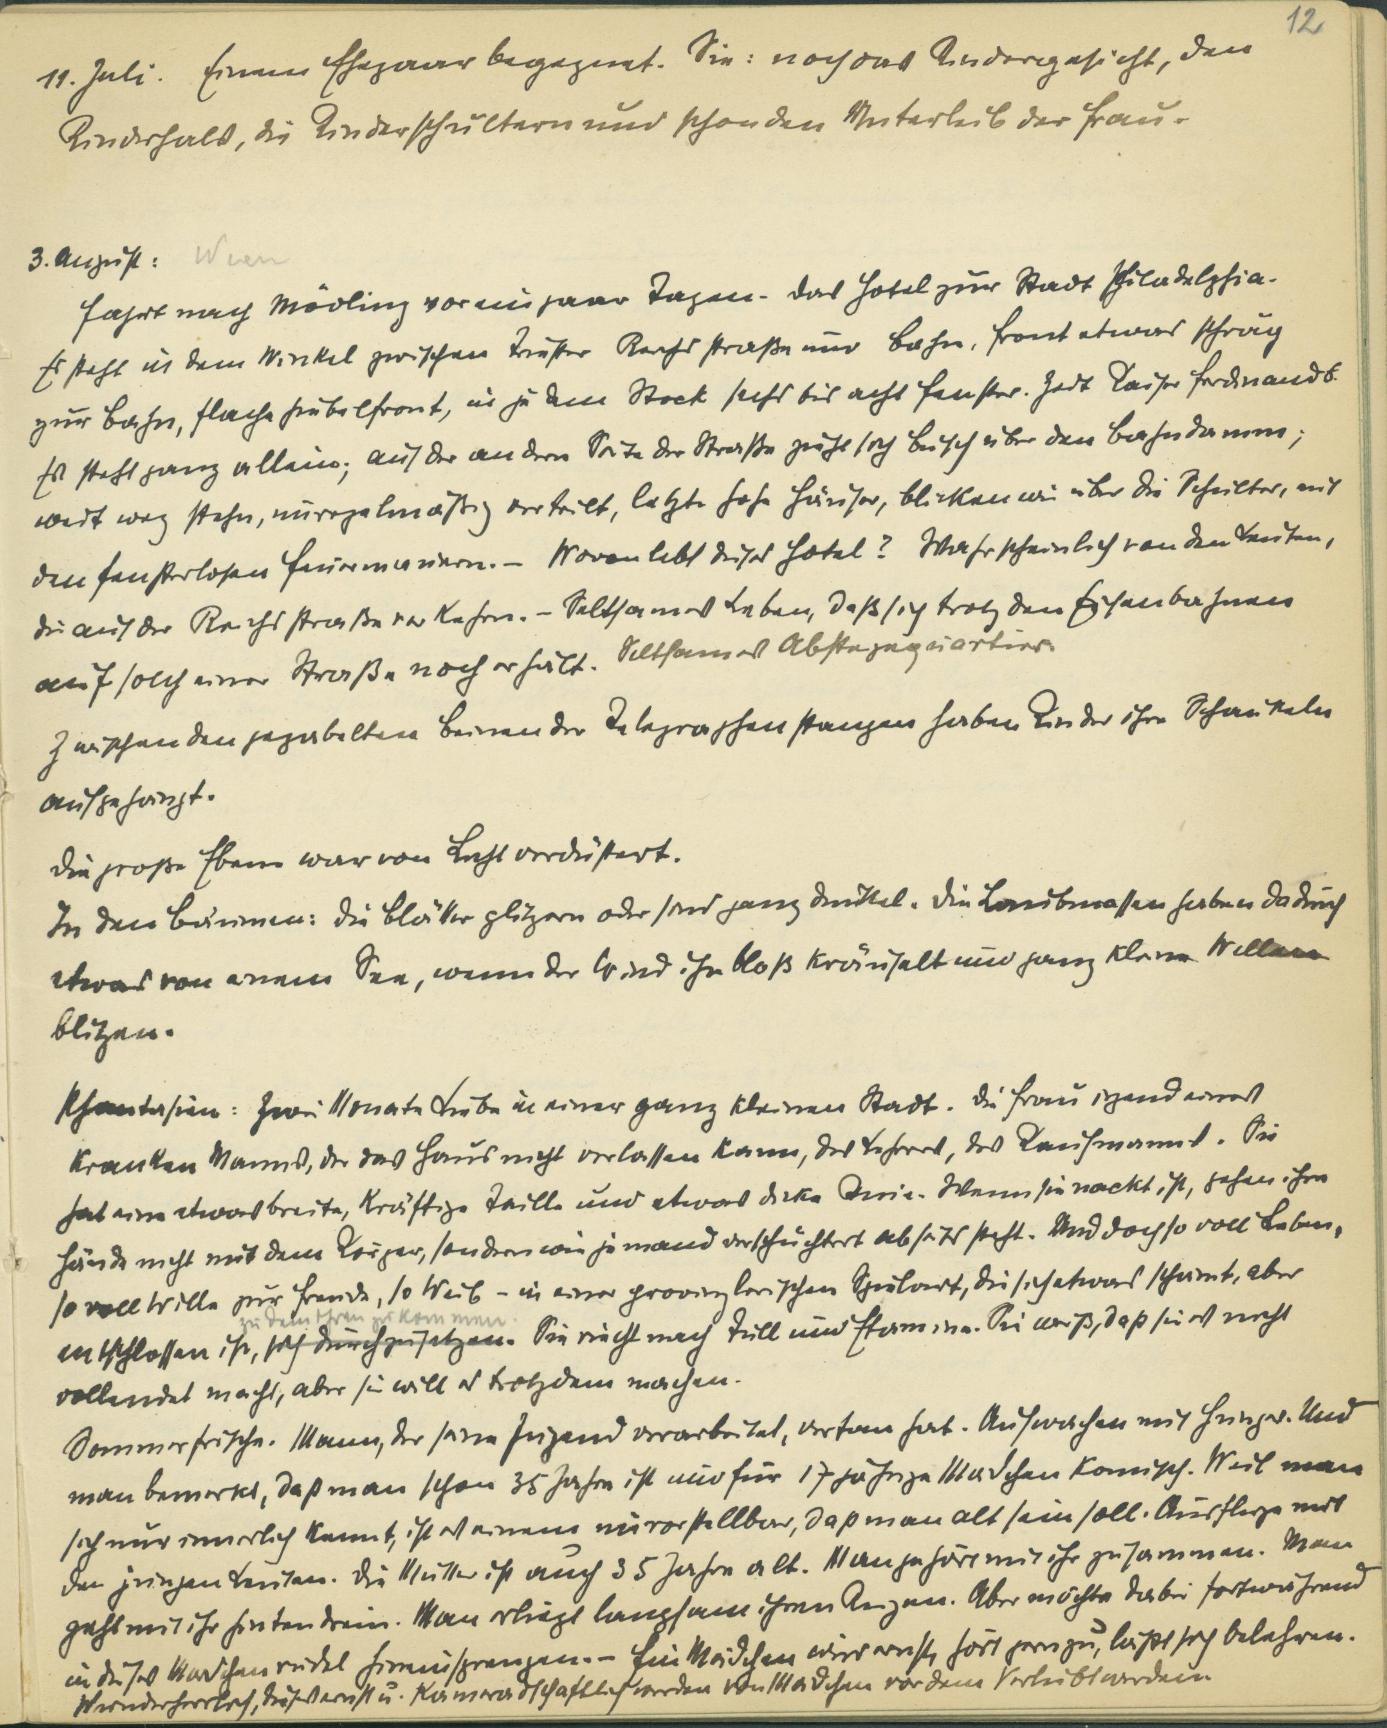 12
11. Juli. Einem Ehepaar begegnet. Sie: noch das Kindergesicht, den
Kinderhals, die Kinderschultern und schon den Unterleib der Frau.
3. August: Wien
Fahrt nach Mödling vor ein paar Tagen. Das Hotel zur Stadt Philadelphia.
Es steht in dem Winkel zwischen Triester Reichsstraße und Bahn, Front etwas schräg
zur Bahn, flache Giebelfront, in jedem Stock sechs bis acht Fenster. Zeit Kaiser Ferdinands.
Es steht ganz allein; auf der andern Seite der Straße zieht sich Busch über den Bahndamm;
weit weg stehn, unregelmäßig verteilt, letzte hohe Häuser, blicken wie über die Schulter, mit
den fensterlosen Feuermauern. – Wovon lebt dieses Hotel? Wahrscheinlich von den Leuten,
die auf der Reichsstraße verkehren. – Seltsames Leben, daß sich trotz den Eisenbahnen
auf solch einer Straße noch erhält. Seltsames Absteigequartier.
Zwischen den gegabelten Beinen der Telegraphenstangen haben Kinder ihre Schaukeln
aufgehängt.
Die große Ebene war von Licht verdüstert.
In den Bäumen: die Blätter glitzern oder sind ganz dunkel. Die Laubmassen haben dadurch
etwas von einem See, wenn der Wind ihn bloß kräuselt und ganz kleine Wellen
blitzen.
Phantasien: Zwei Monate Liebe in einer ganz kleinen Stadt. Die Frau irgend eines
kranken Manns, der das Haus nicht verlassen kann, des Lehrers, des Kaufmanns. Sie
hat eine etwas breite, kräftige Taille und etwas dicke Knie. Wenn sie nackt ist, gehen ihre
Hände nicht mit dem Körper, sondern wie jemand verschüchtert abseits steht. Und doch so voll Leben,
so voll Wille zur Freude, so Weib – in einer provinzlerischen Spielart, die sich etwas schämt, aber
zu dem Ihren zu kommen.
entschlossen ist, sich durchzusetzen. Sie riecht nach Tüll und Etamine. Sie weiß, daß sie es nicht
vollendet macht, aber sie will es trotzdem machen.
Sommerfrische. Mann, der seine Jugend verarbeitet, vertan hat. Aufwachen mit Hunger. Und
man bemerkt, daß man schon 35 Jahre ist und für 17 jährige Mädchen komisch. Weil man
sich nur innerlich kennt, ist es einem unvorstellbar, daß man alt sein soll. Ausflüge mit
den jungen Leuten. Die Mutter ist auch 35 Jahre alt. Man gehört mit ihr zusammen. Man
geht mit ihr hintendrein. Man erliegt langsam ihren Reizen. Aber möchte dabei fortwährend
in dieses Mädchenrudel hineinspringen. – Ein Mädchen wird ernst, hört gern zu, läßt sich belehren.
Wunderherrlich, dies ernst u. kameradschaftlich werden von Mädchen vor dem Verliebtwerden